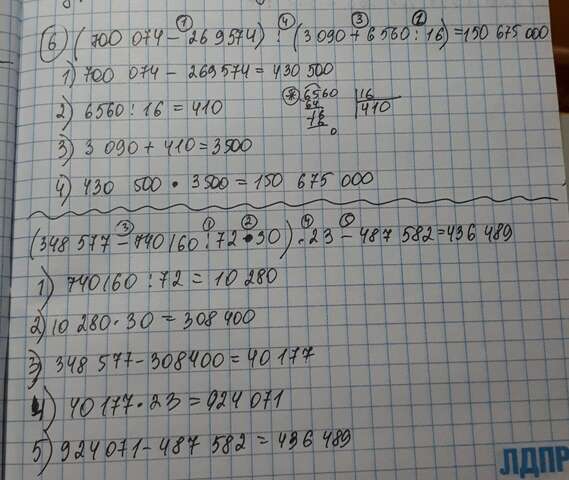 ⑥ (700 074 - 269574) : (3 090 + 6560 : 16) = 150 675 000
① ④ ③ ②
1) 700 074 - 269574 = 430 500
2) 6560 : 16 = 410
* 6560 16
64 410
16
16
0
3) 3 090 + 410 = 3500
4) 430 500 • 3500 = 150 675 000
(348 577 - 740160 : 72 • 30) • 23 - 487 582 = 436 489
③ ① ② ④ ⑤
1) 740160 : 72 = 10 280
2) 10 280 • 30 = 308 400
3) 348 577 - 308400 = 40 177
4) 40 177 • 23 = 924 071
5) 924 071 - 487 582 = 436 489
ЛДПР